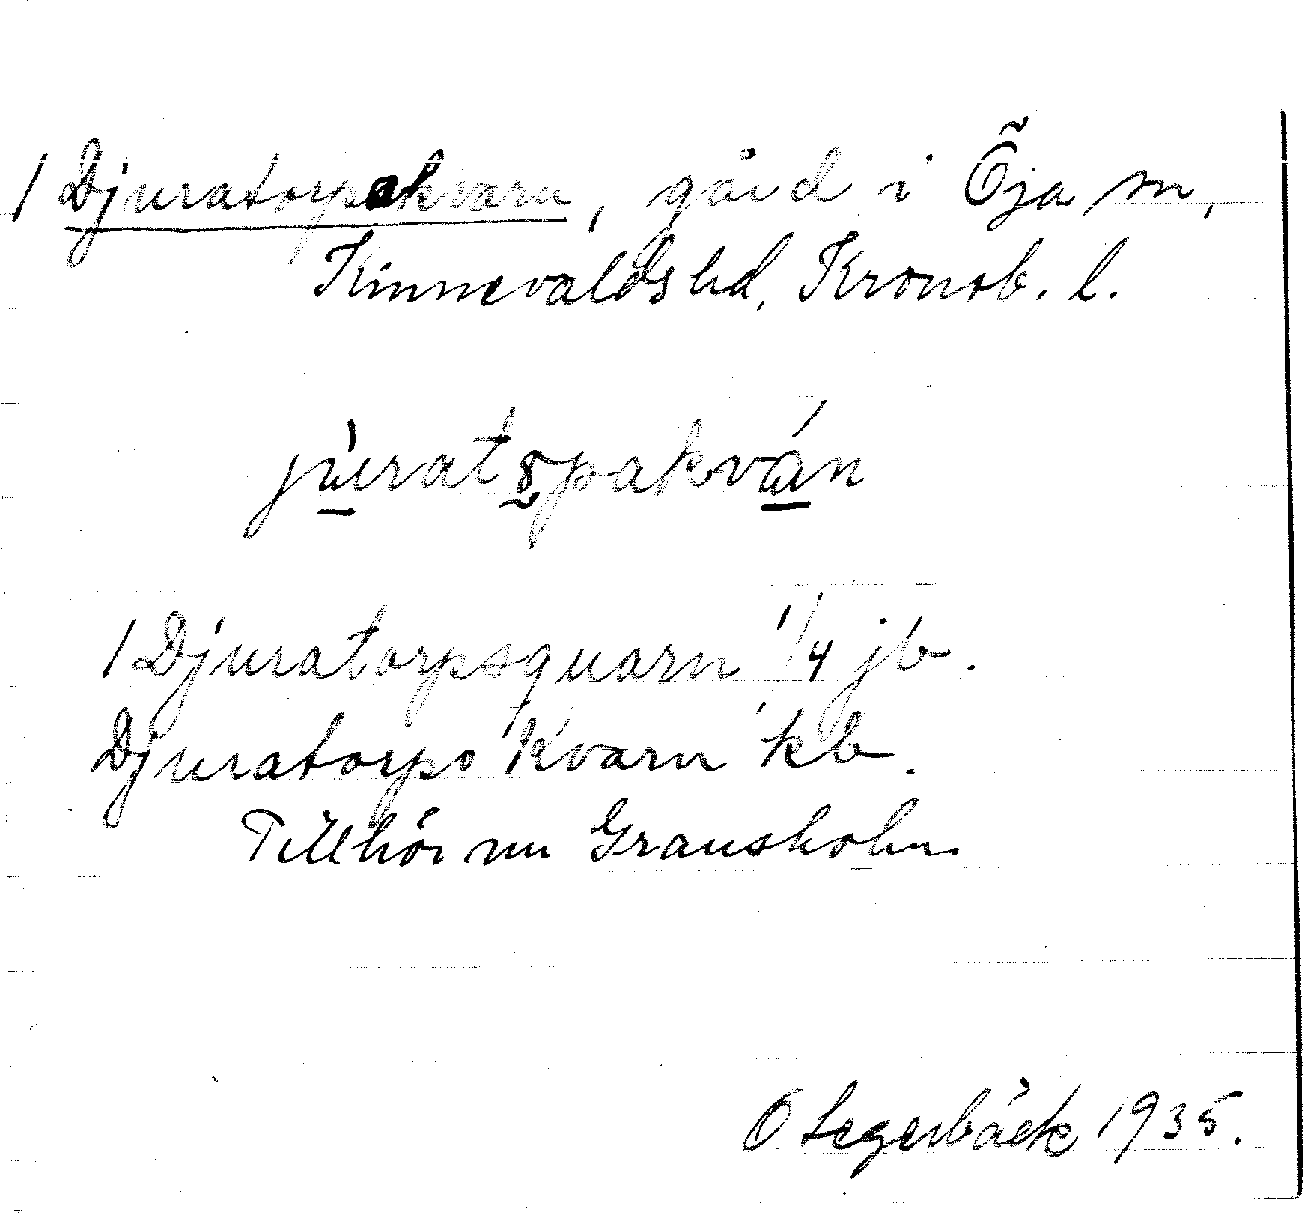 / Djuratorpakvarn, gård i Öja sn,
Kinnevalds hd, Kronob. l.
júratspakván
/ Djuratorpsquarn 1/4 jb.
Djuratorps kvarn kb.
Tillhör nu Gransholm.
O Segerbäck 1935.